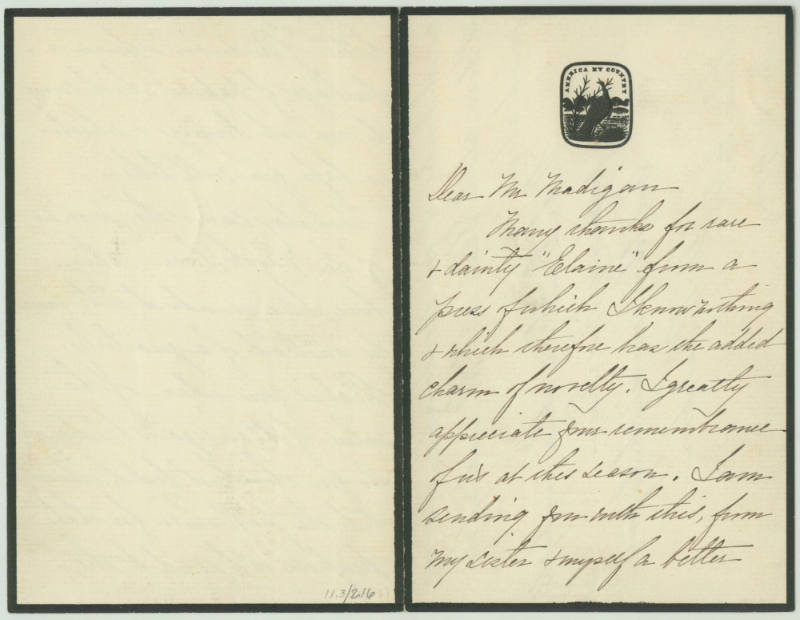 AMERICA MY COUNTRY
Dear Mr Madigan
Many thanks for rare
+ dainty "Elaine" from a
press of which I know nothing
+ which therefore has the added
charm of novelty. I greatly
appreciate your remembrance
of us at this season. I am
sending you with this, from
my sister + myself a better
11.3/216